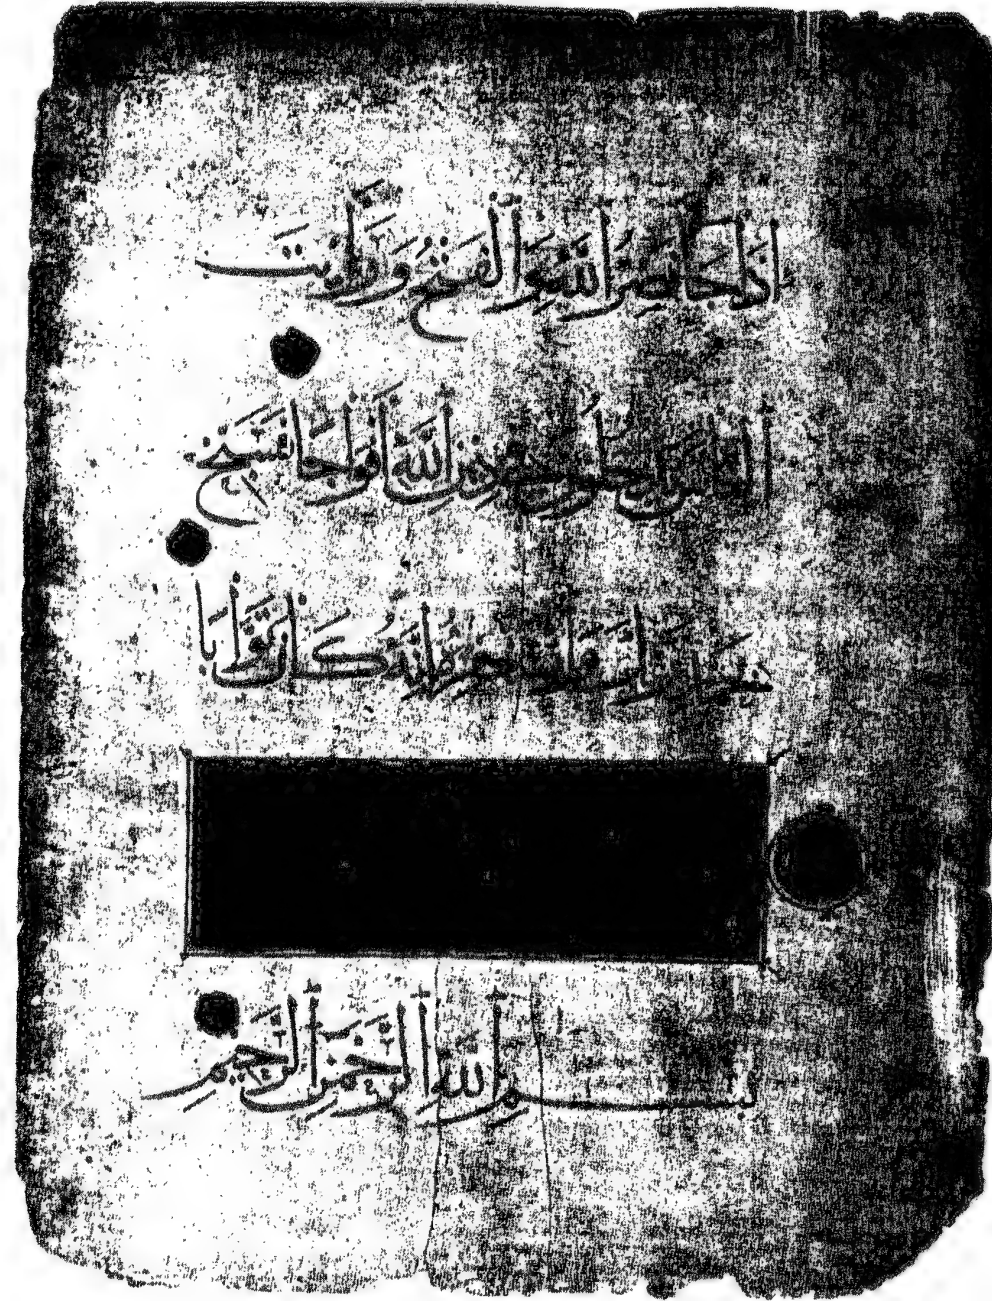 إِذَا جَاءَ نَصْرُ اللَّهِ وَالْفَتْحُ وَرَأَيْتَ
النَّاسَ يَدْخُلُونَ فِي دِينِ اللَّهِ أَفْوَاجًا فَسَبِّحْ
بِحَمْدِ رَبِّكَ وَاسْتَغْفِرْهُ إِنَّهُ كَانَ تَوَّابًا
بِسْمِ اللَّهِ الرَّحْمَٰنِ الرَّحِيمِ